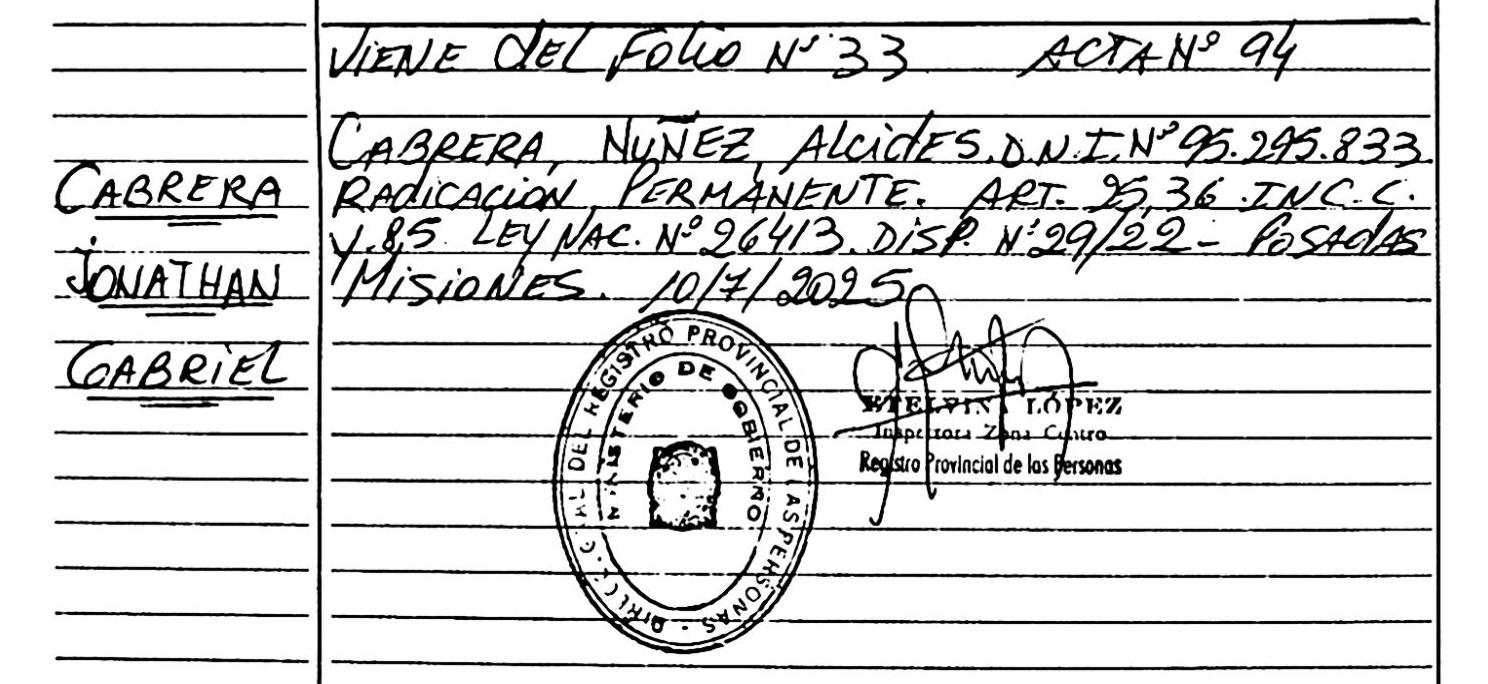 VIENE DEL FOLIO Nº 33 ACTA Nº 94
CABRERA, NUÑEZ, ALCIDES. D.N.I. Nº 95.295.833.
RADICACIÓN PERMANENTE. ART. 25, 36. INC. C.
Y. 85 LEY NAC. Nº 26413. DISP. Nº 29/22 - POSADAS
MISIONES. 10/7/2025
CABRERA
JONATHAN
GABRIEL
REGISTRO PROVINCIAL DE LAS PERSONAS
MINISTERIO DE GOBIERNO
ETELVINA LÓPEZ
Inspectora Zona Centro
Registro Provincial de las Personas